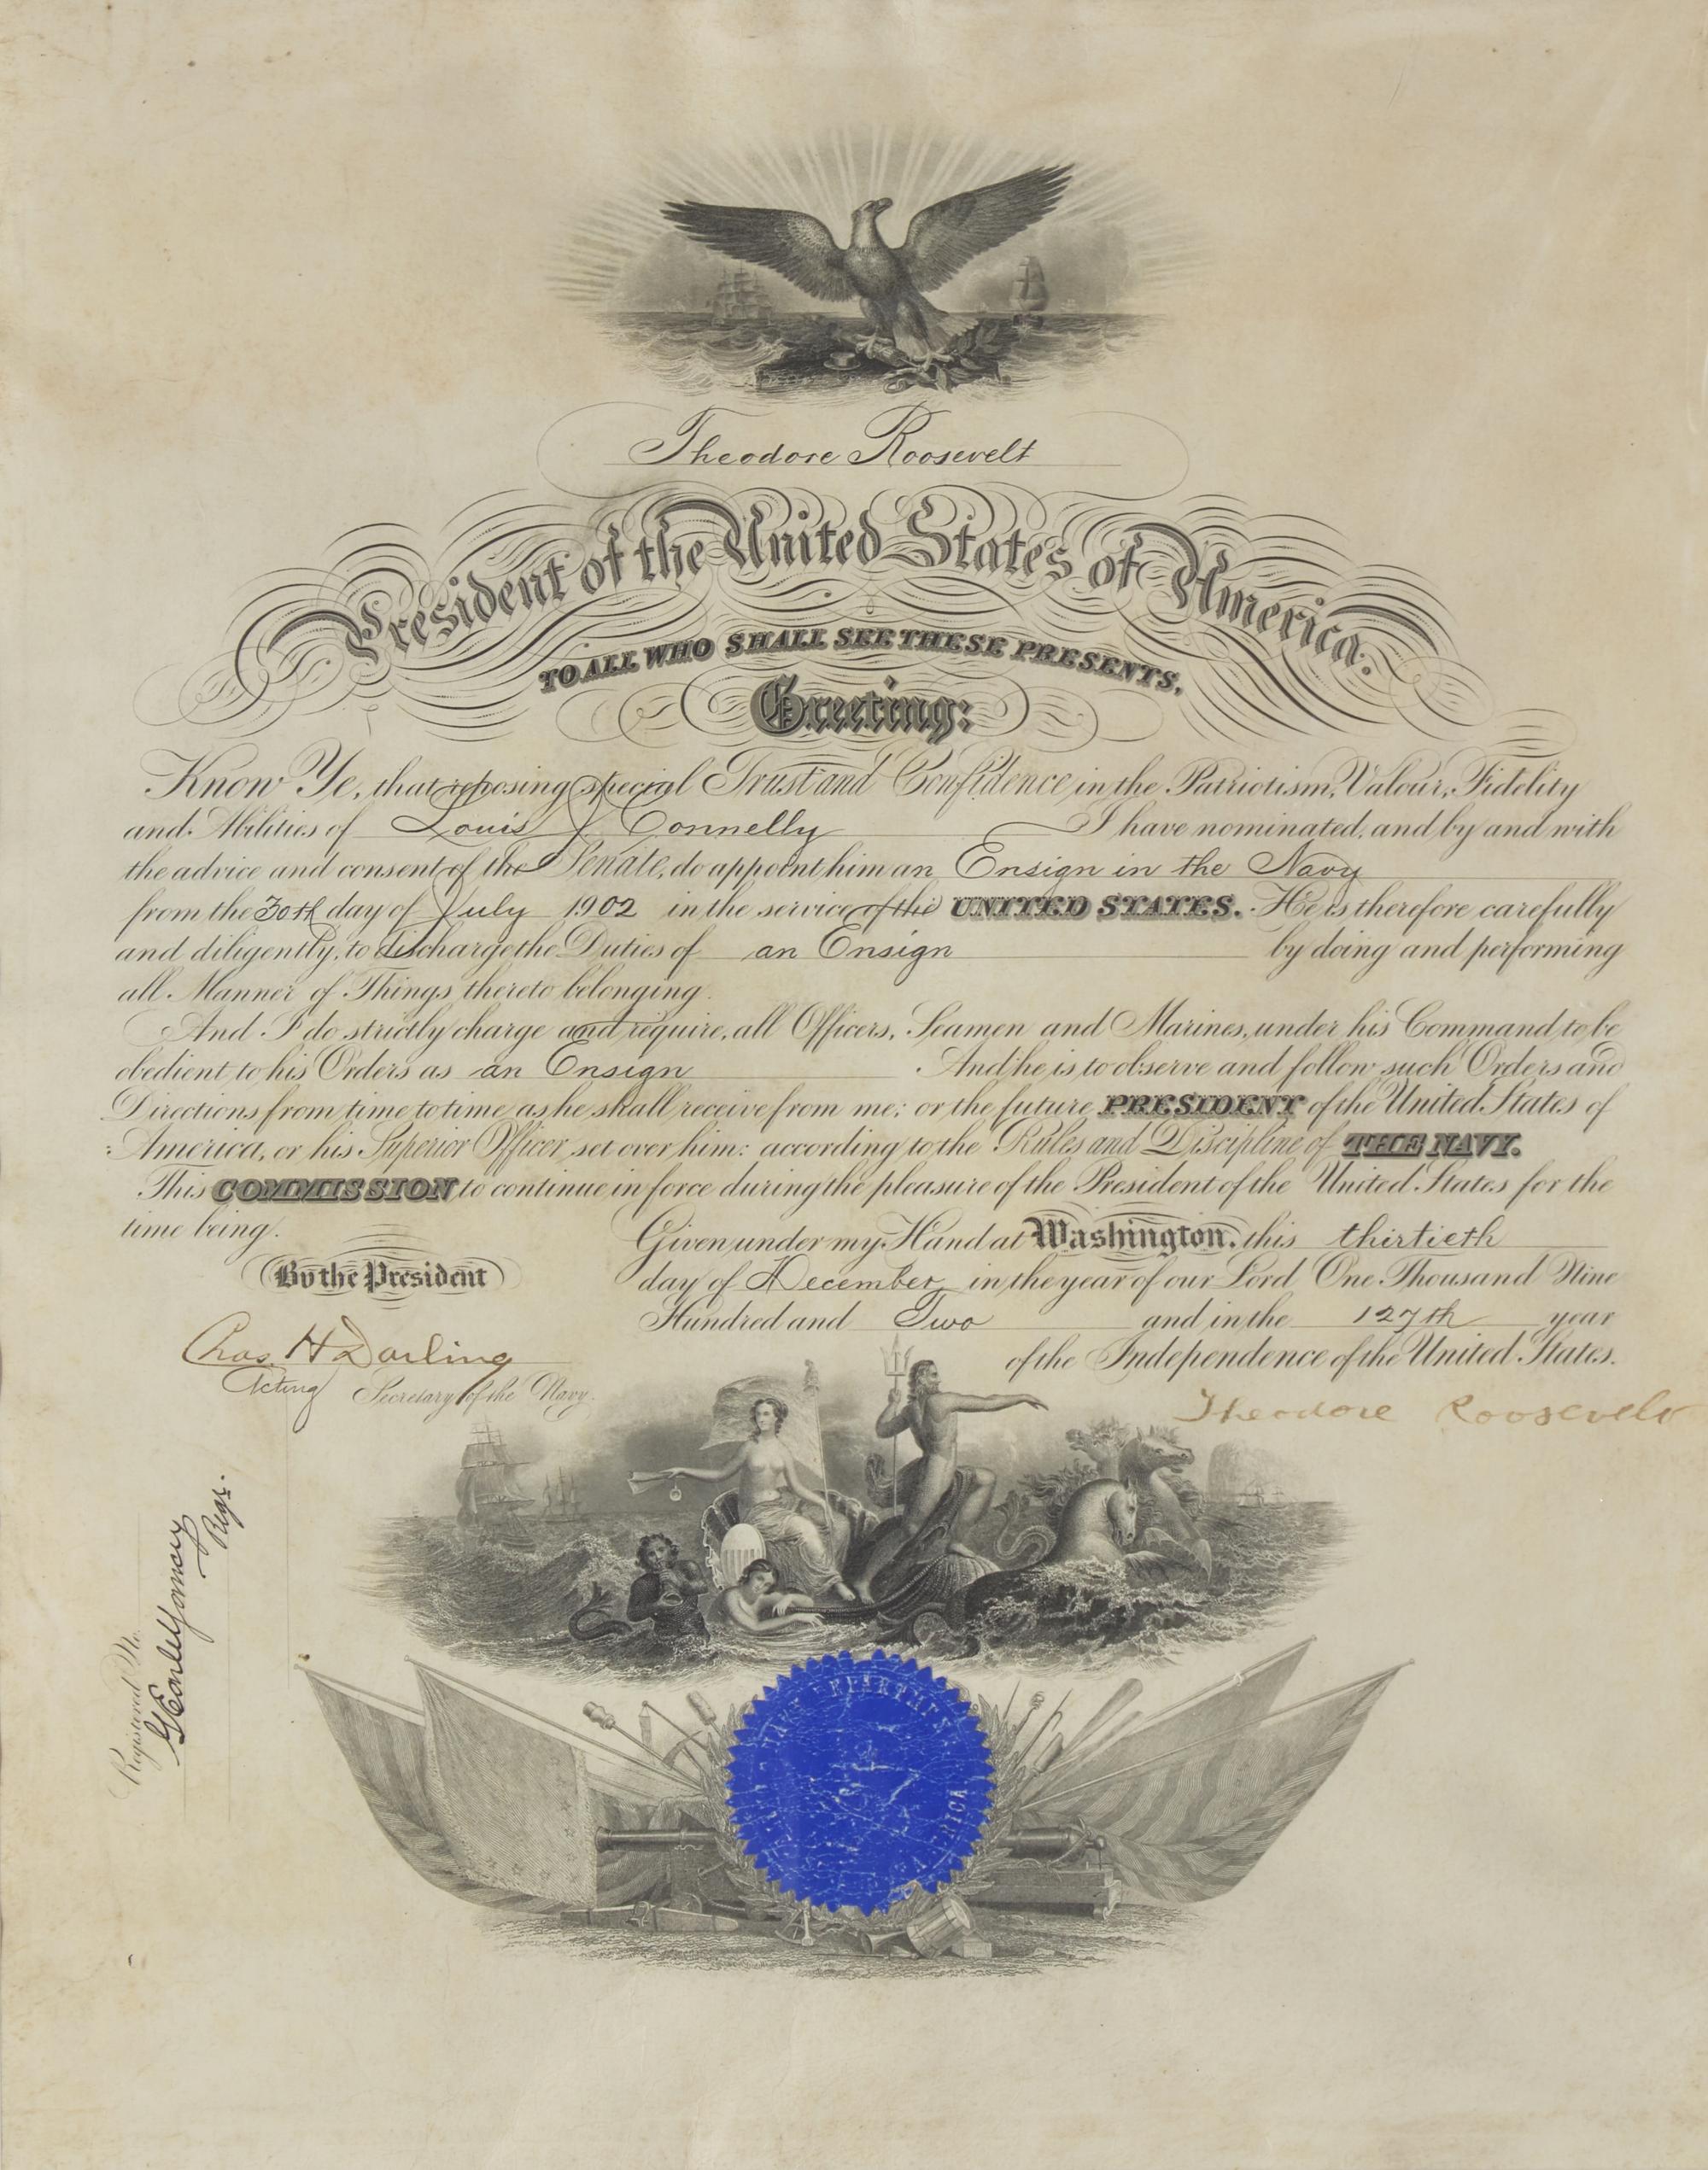 Theodore Roosevelt
President of the United States of America.
TO ALL WHO SHALL SEE THESE PRESENTS,
Greeting:
Know Ye, that reposing special Trust and Confidence in the Patriotism, Valour, Fidelity
and Abilities of Louis J. Connelly I have nominated, and by and with
the advice and consent of the Senate, do appoint him an Ensign in the Navy
from the 30th day of July 1902 in the service of the UNITED STATES. He is therefore carefully
and diligently, to discharge the Duties of an Ensign by doing and performing
all Manner of Things thereto belonging.
And I do strictly charge and require, all Officers, Seamen and Marines, under his Command to be
obedient to his Orders as an Ensign And he is to observe and follow such Orders and
Directions from time to time as he shall receive from me; or the future PRESIDENT of the United States of
America, or his Superior Officer set over him: according to the Rules and Discipline of THE NAVY.
This COMMISSION to continue in force during the pleasure of the President of the United States for the
time being.
Given under my Hand at Washington, this thirtieth
day of December in the year of our Lord One Thousand Nine
Hundred and Two and in the 127th year
of the Independence of the United States.
By the President
Theodore Roosevelt
Chas. H Darling
Acting Secretary of the Navy.
Registered No.
Regr.